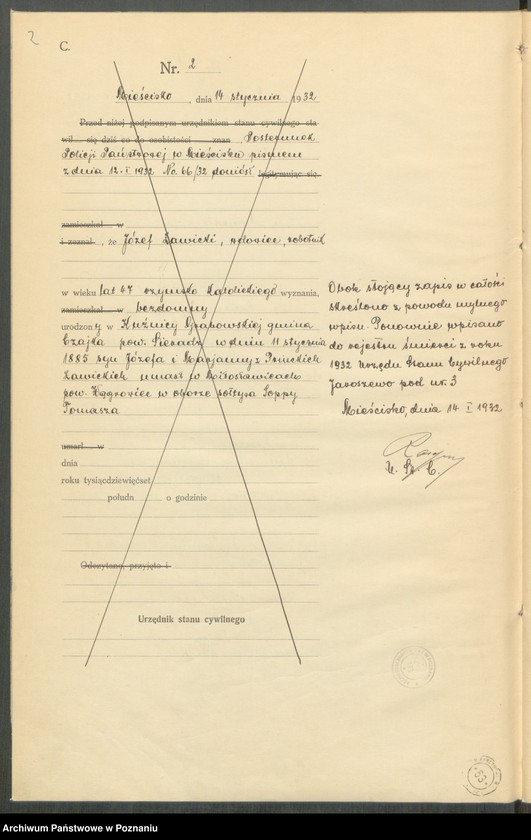 2
C.
Nr. 2
Mieścisko, dnia 14 stycznia 1932
Przed niżej podpisanym urzędnikiem stanu cywilnego sta
wił się dziś co do osobistości znan Posterunek
Policji Państwowej w Mieścisku pismem
z dnia 12. I 1932 No. 66/32 doniósł legitymując się
zamieszkał w
i zeznał, że Józef Zawicki, wdowiec, robotnik
w wieku lat 47 rzymsko katolickiego wyznania,
zamieszkał w bezdomny
urodzony w Kuźnicy Grabowskiej gmina
Czajka pow. Sieradz w dniu 11 stycznia
1885 syn Józefa i Marjanny z
Zawickich umarł w Miłosławicach
pow. Wągrowiec w oborze sołtysa Soppy
Tomasza
umarł w
dnia
roku tysiącdziewięćset
połudn o godzinie
Odczytano, przyjęto i
Urzędnik stanu cywilnego
Obok stojący zapis w całości
skreślono z powodu mylnego
wpisu. Ponownie wpisano
do rejestru śmierci z roku
1932 Urzędu Stanu Cywilnego
Jaroszewo pod nr. 3
Mieścisko, dnia 14 I 1932
U. S. C.
53
Archiwum Państwowe w Poznaniu